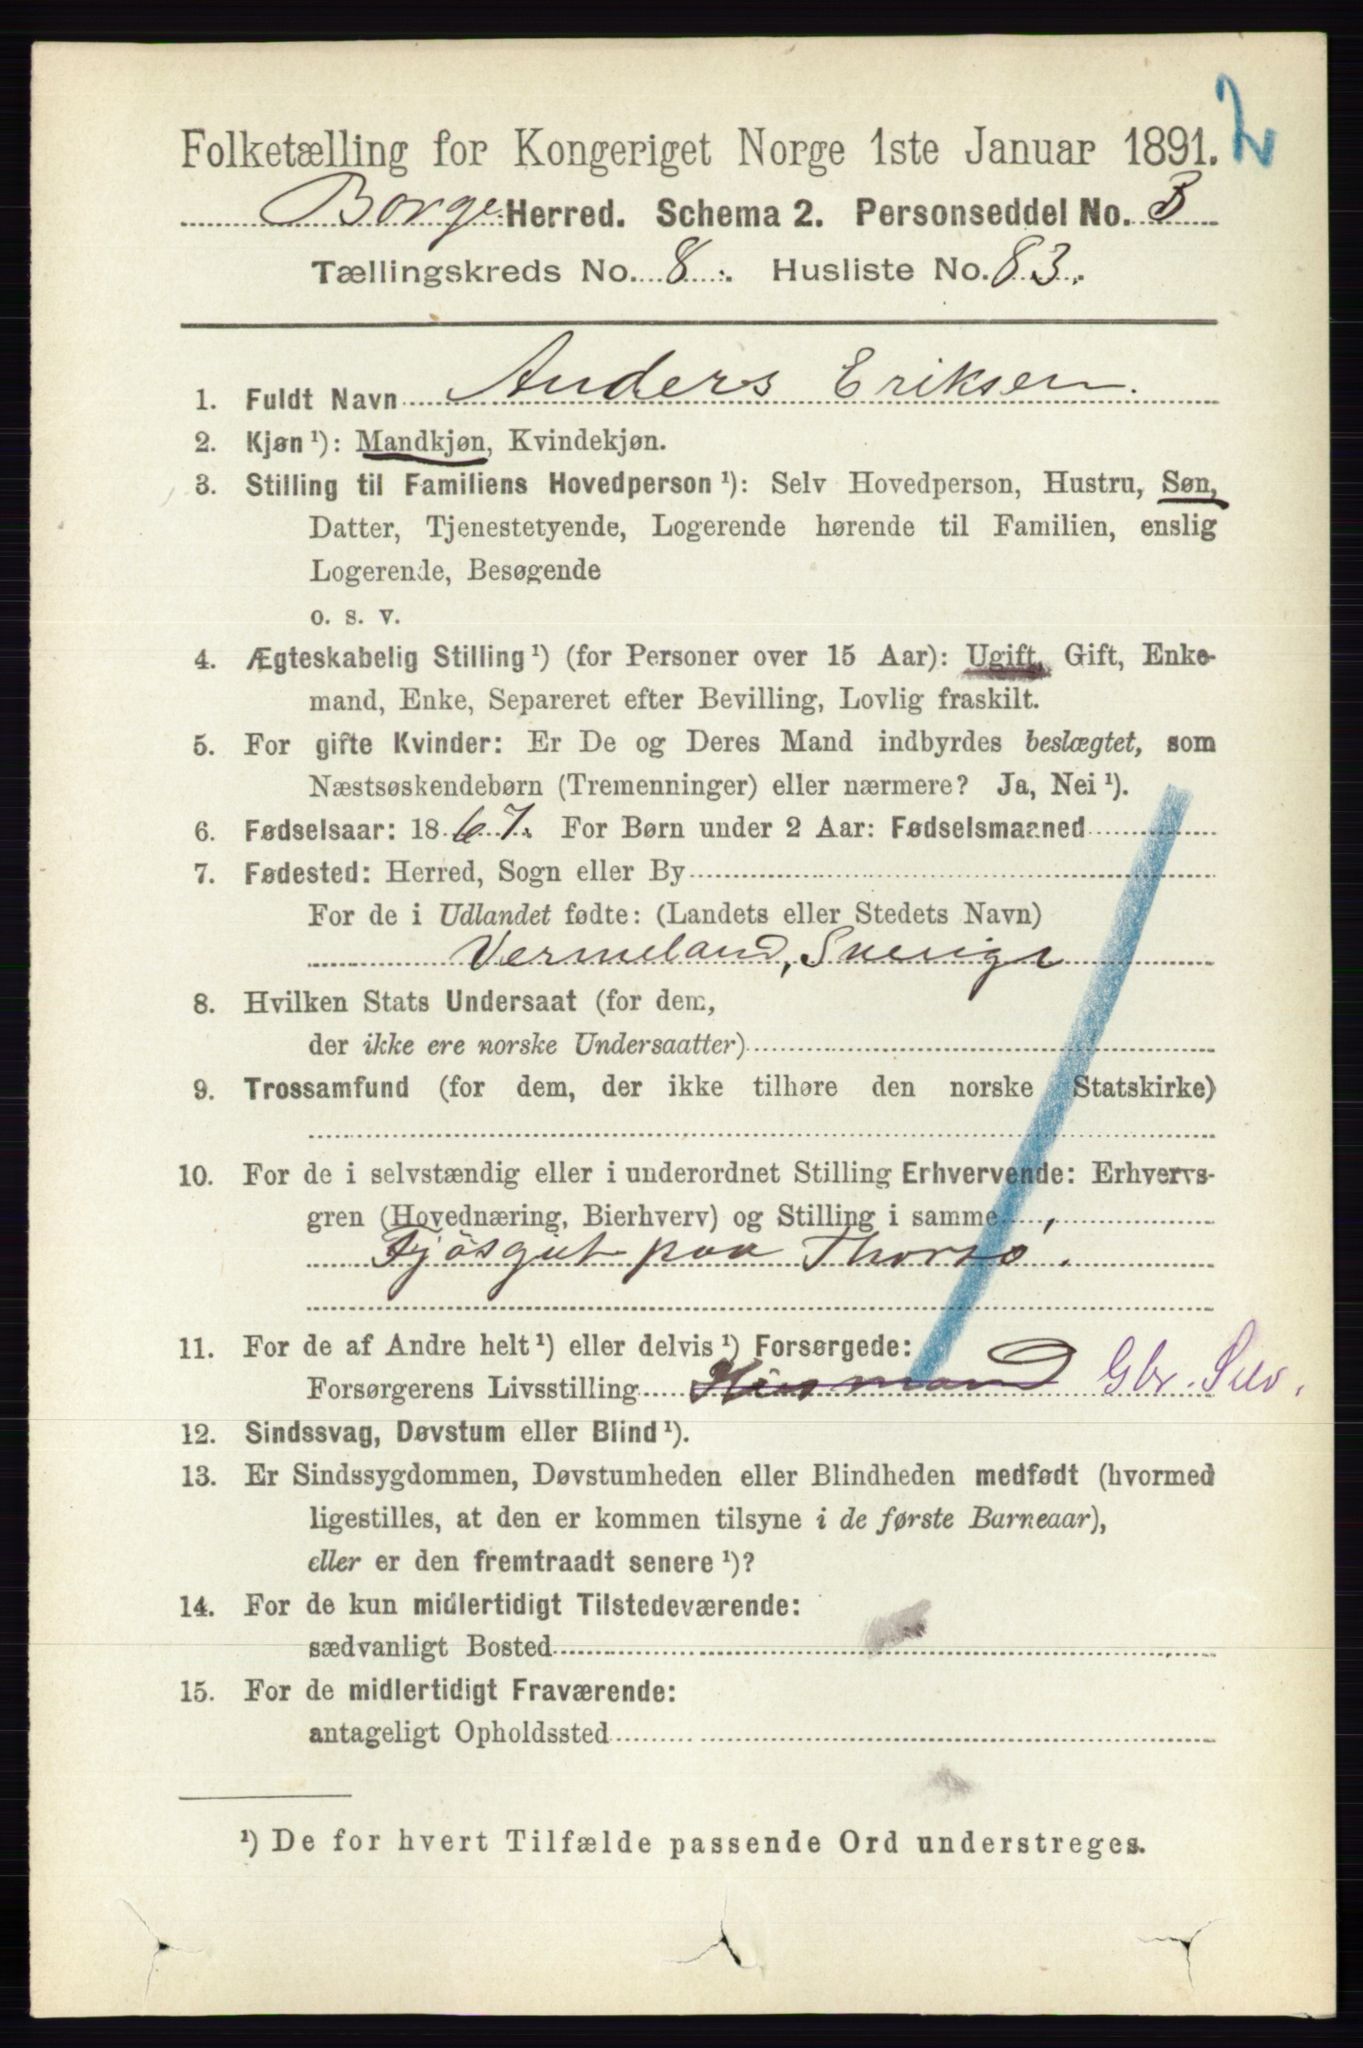 2
Folketælling for Kongeriget Norge 1ste Januar 1891.
Borge Herred. Schema 2. Personseddel No. 3
Tællingskreds No. 8. Husliste No. 83.
1. Fuldt Navn Anders Eriksen.
2. Kjøn ¹): Mandkjøn, Kvindekjøn.
3. Stilling til Familiens Hovedperson ¹): Selv Hovedperson, Hustru, Søn,
Datter, Tjenestetyende, Logerende hørende til Familien, enslig
Logerende, Besøgende
o. s. v.
4. Ægteskabelig Stilling ¹) (for Personer over 15 Aar): Ugift, Gift, Enke-
mand, Enke, Separeret efter Bevilling, Lovlig fraskilt.
5. For gifte Kvinder: Er De og Deres Mand indbyrdes beslægtet, som
Næstsøskendebørn (Tremenninger) eller nærmere? Ja, Nei ¹).
6. Fødselsaar: 1867. For Børn under 2 Aar: Fødselsmaaned
7. Fødested: Herred, Sogn eller By
For de i Udlandet fødte: (Landets eller Stedets Navn)
Vermeland, Sverige
8. Hvilken Stats Undersaat (for dem,
der ikke ere norske Undersaatter)
9. Trossamfund (for dem, der ikke tilhøre den norske Statskirke)
10. For de i selvstændig eller i underordnet Stilling Erhvervende: Erhvervs-
gren (Hovednæring, Bierhverv) og Stilling i samme
Fjøsgut paa Thorsø.
11. For de af Andre helt ¹) eller delvis ¹) Forsørgede:
Forsørgerens Livsstilling Husmand Gbr. Selv.
12. Sindssvag, Døvstum eller Blind ¹).
13. Er Sindssygdommen, Døvstumheden eller Blindheden medfødt (hvormed
ligestilles, at den er kommen tilsyne i de første Barneaar),
eller er den fremtraadt senere ¹)?
14. For de kun midlertidigt Tilstedeværende:
sædvanligt Bosted
15. For de midlertidigt Fraværende:
antageligt Opholdssted
¹) De for hvert Tilfælde passende Ord understreges.